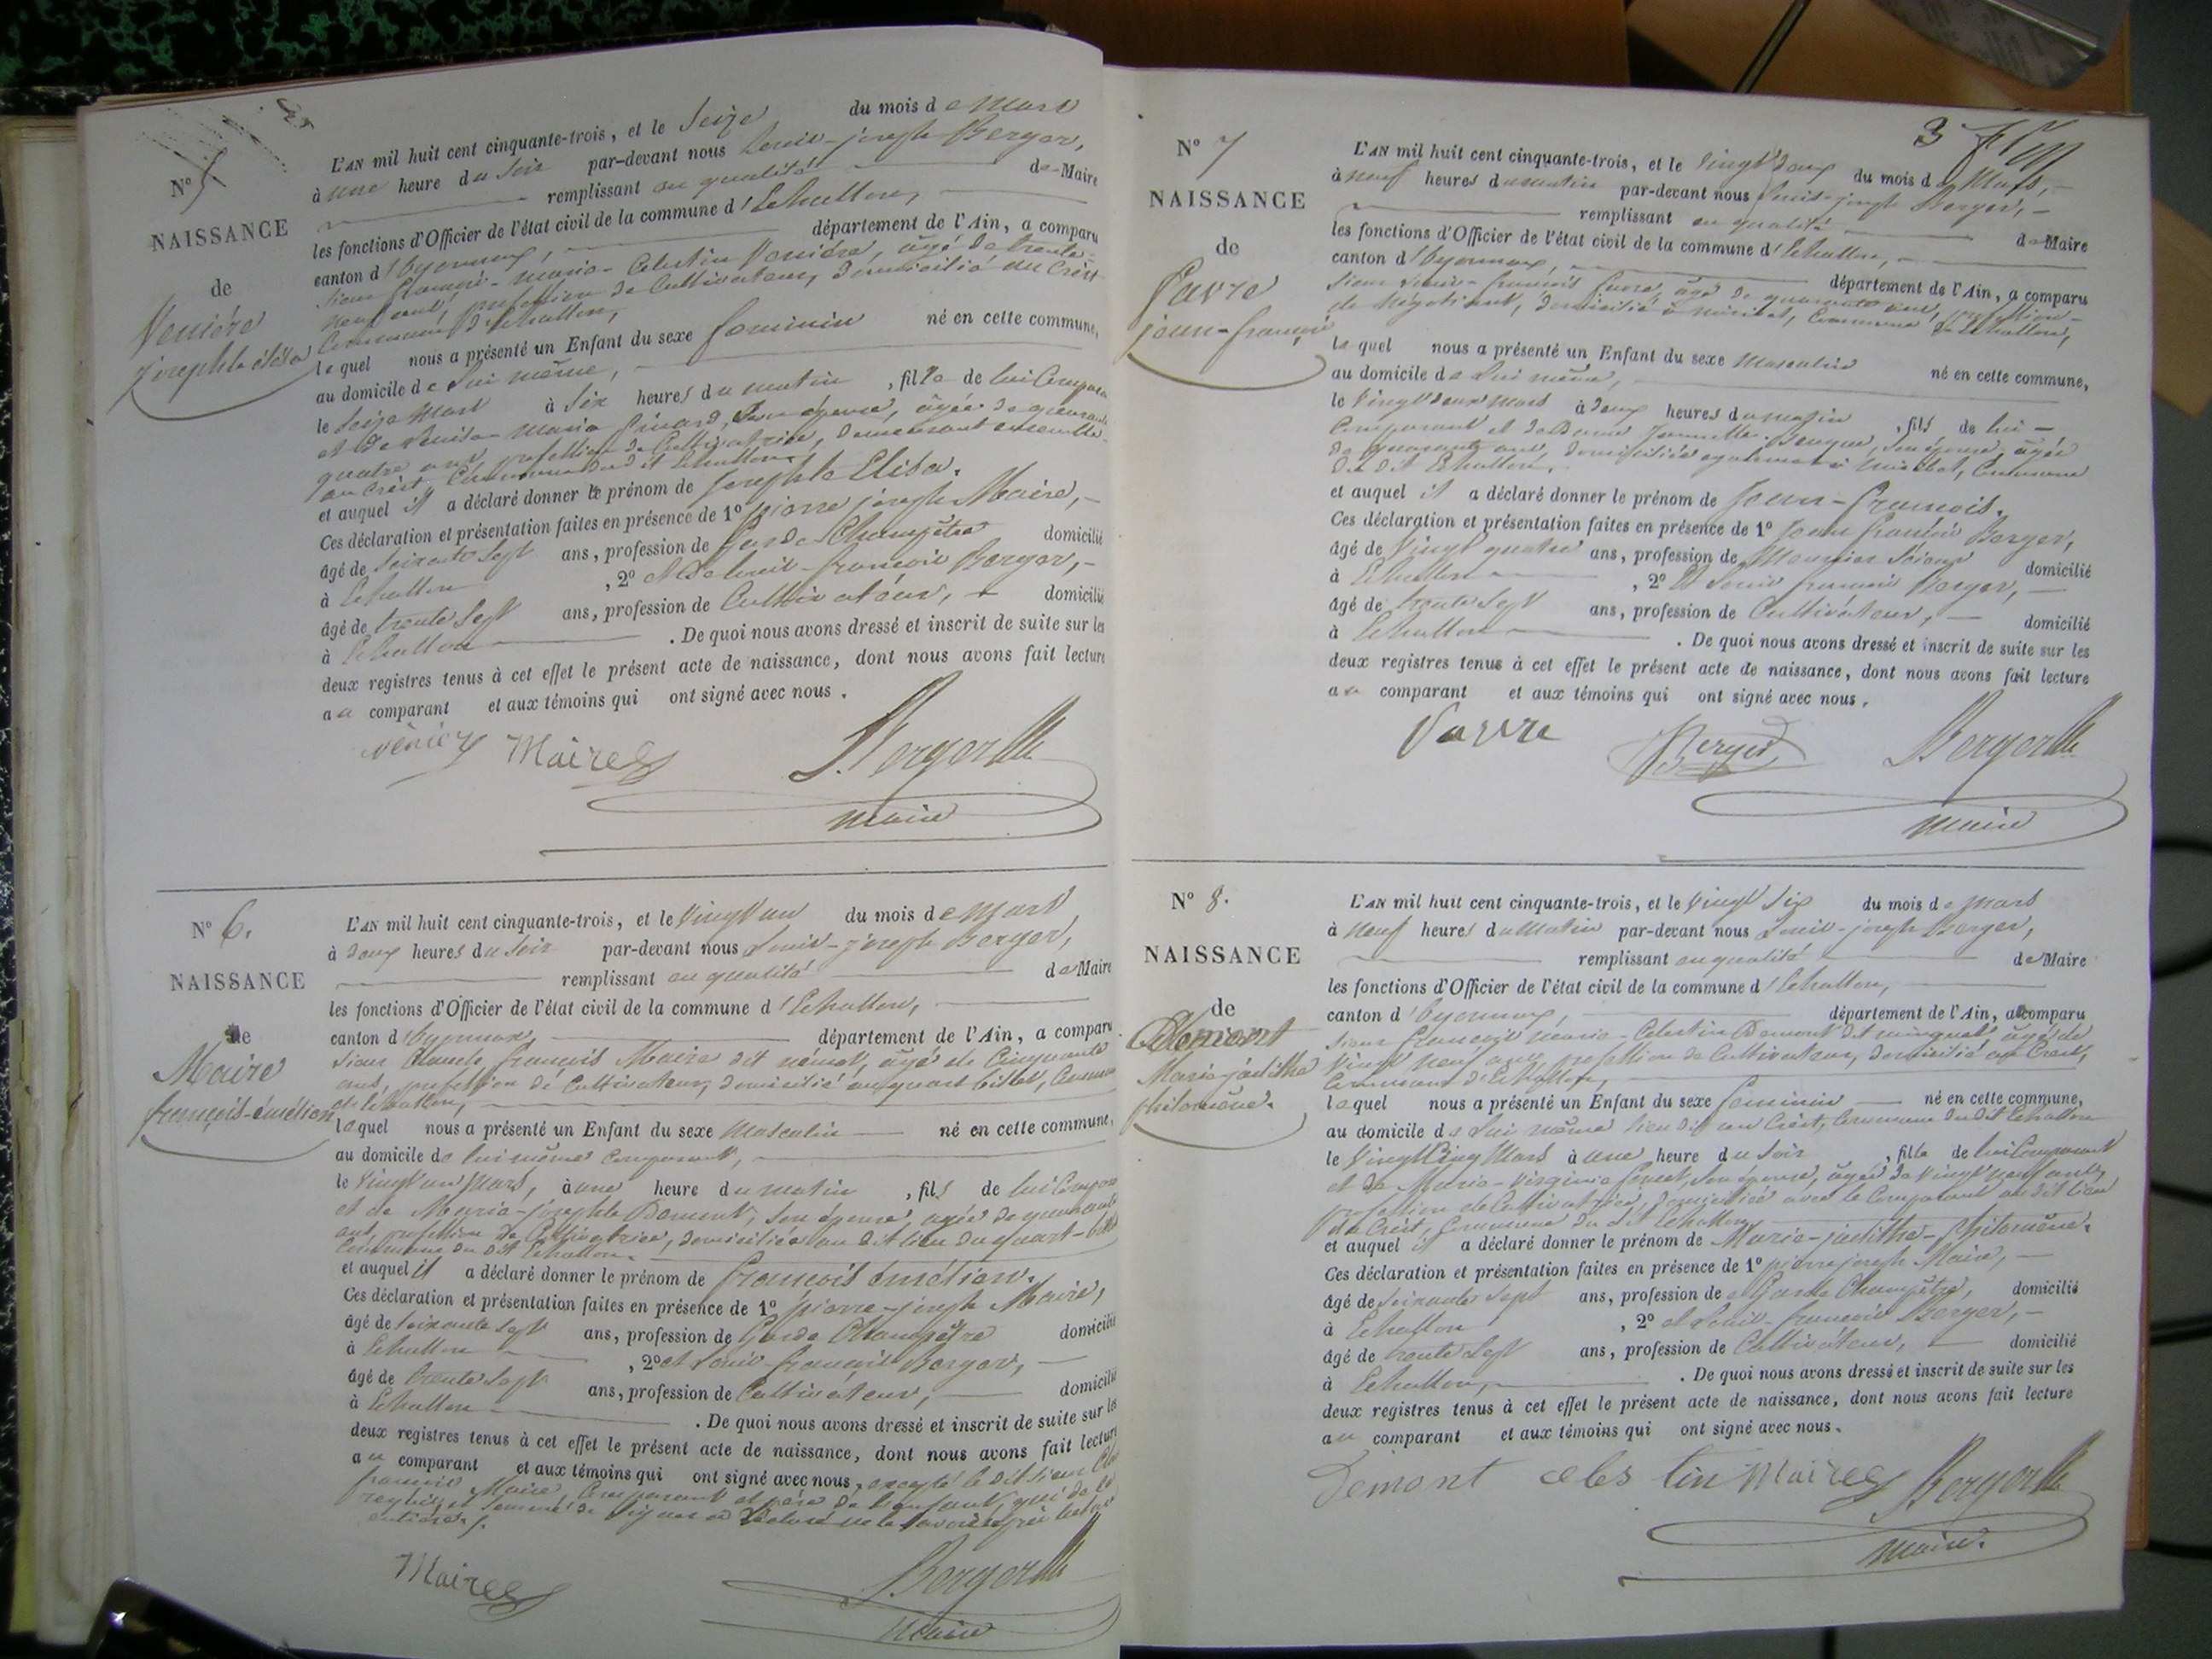 Nº 5
NAISSANCE
de
Venière
josephte élisa
L'AN mil huit cent cinquante-trois, et le Seize du mois de Mars
à une heure du Soir par-devant nous Louis-joseph Berger,
remplissant en qualité de Maire
les fonctions d'Officier de l'état civil de la commune d'Echallon,
canton d'Oyonnax, département de l'Ain, a comparu
Sieur François-marie-Célestin Venière, âgé de trente-
neuf ans, profession de Cultivateur, domicilié au Crêt
Commune d'Echallon,
lequel nous a présenté un Enfant du sexe féminin né en cette commune,
au domicile de lui même,
le Seize Mars à Six heures du matin, fille de lui Compara
et de Louise Marie, Son épouse, âgée de quarante
quatre ans, profession de Cultivatrice, demeurant ensemble
au Crêt, Commune du dit Echallon.
et auquel il a déclaré donner le prénom de Josephte Elisa.
Ces déclaration et présentation faites en présence de 1º pierre joseph Maire,
âgé de Soixante Sept ans, profession de Garde Champêtre domicilié
à Echallon, 2º et de Louis-françois Berger,
âgé de trente Sept ans, profession de Cultivateur, domicilié
à Echallon. De quoi nous avons dressé et inscrit de suite sur les
deux registres tenus à cet effet le présent acte de naissance, dont nous avons fait lecture
au comparant et aux témoins qui ont signé avec nous.
Maire
Berger
Maire
Nº 6.
NAISSANCE
de
Maire
françois-émélien
L'AN mil huit cent cinquante-trois, et le Vingt un du mois de Mars
à deux heures du Soir par-devant nous Louis-joseph Berger,
remplissant en qualité de Maire
les fonctions d'Officier de l'état civil de la commune d'Echallon,
canton d'Oyonnax, département de l'Ain, a comparu
Sieur Claude françois Maire dit, âgé de Cinquante
ans, profession de Cultivateur, domicilié au quart billet, Commune
d'Echallon,
lequel nous a présenté un Enfant du sexe Masculin né en cette commune,
au domicile de lui même Comparant,
le Vingt un Mars, à une heure du matin, fils de lui Compara
et de Marie-josephte Demont, Son épouse, âgée de quarante
ans, profession de Cultivatrice, domiciliée au dit lieu du quart-billet
Commune du dit Echallon.
et auquel il a déclaré donner le prénom de françois émélien.
Ces déclaration et présentation faites en présence de 1º pierre-joseph Maire,
âgé de Soixante Sept ans, profession de Garde Champêtre domicilié
à Echallon, 2º et Louis-françois Berger,
âgé de trente Sept ans, profession de Cultivateur, domicilié
à Echallon. De quoi nous avons dressé et inscrit de suite sur les
deux registres tenus à cet effet le présent acte de naissance, dont nous avons fait lecture
au comparant et aux témoins qui ont signé avec nous, excepté le dit Sieur
françois Maire, Comparant et père de l'enfant, qui de ce
requis et Sommé de Signer a déclaré ne le Savoir
Maire
Berger
Maire
3
Nº 7
NAISSANCE
de
favre
jean-françois
L'AN mil huit cent cinquante-trois, et le Vingt deux du mois de Mars,
à neuf heures du matin par-devant nous Louis-joseph Berger,
remplissant en qualité de Maire
les fonctions d'Officier de l'état civil de la commune d'Echallon,
canton d'Oyonnax, département de l'Ain, a comparu
Sieur Louis-françois favre, âgé de quarante ans, profession
de Négotiant, domicilié à, Commune d'Echallon,
lequel nous a présenté un Enfant du sexe Masculin né en cette commune,
au domicile de lui même,
le Vingt deux Mars à deux heures du matin, fils de lui
Comparant et de Dame Jeannette, Son épouse, âgée
de quarante ans, domiciliée également à, Commune
du dit Echallon.
et auquel il a déclaré donner le prénom de Jean-françois.
Ces déclaration et présentation faites en présence de 1º Jean françois Berger,
âgé de Vingt quatre ans, profession de Meunier Scieur domicilié
à Echallon, 2º Et Louis françois Berger,
âgé de trente Sept ans, profession de Cultivateur, domicilié
à Echallon. De quoi nous avons dressé et inscrit de suite sur les
deux registres tenus à cet effet le présent acte de naissance, dont nous avons fait lecture
au comparant et aux témoins qui ont signé avec nous.
Favre
Berger
Berger
Maire
Nº 8.
NAISSANCE
de
Demont
Marie-judithe
philomène.
L'AN mil huit cent cinquante-trois, et le Vingt Six du mois de Mars
à Neuf heures du Matin par-devant nous Louis-joseph Berger,
remplissant en qualité de Maire
les fonctions d'Officier de l'état civil de la commune d'Echallon,
canton d'Oyonnax, département de l'Ain, a comparu
Sieur françois marie-Célestin Demont dit, âgé de
Vingt neuf ans, profession de Cultivateur, domicilié au Crêt,
Commune d'Echallon,
lequel nous a présenté un Enfant du sexe féminin né en cette commune,
au domicile de lui même lieu dit au Crêt, Commune du dit Echallon
le Vingt Cinq Mars à une heure du Soir, fille de lui Comparant
et de Marie-Virginie, Son épouse, âgée de Vingt neuf ans,
profession de Cultivatrice, domiciliée avec le Comparant au dit lieu
du Crêt, Commune du dit Echallon,
et auquel il a déclaré donner le prénom de Marie-judithe-Philomène.
Ces déclaration et présentation faites en présence de 1º pierre joseph Maire,
âgé de Soixante Sept ans, profession de Garde Champêtre, domicilié
à Echallon, 2º et Louis-françois Berger,
âgé de trente Sept ans, profession de Cultivateur, domicilié
à Echallon,. De quoi nous avons dressé et inscrit de suite sur les
deux registres tenus à cet effet le présent acte de naissance, dont nous avons fait lecture
au comparant et aux témoins qui ont signé avec nous.
Demont celes tin Maire Berger
Maire.